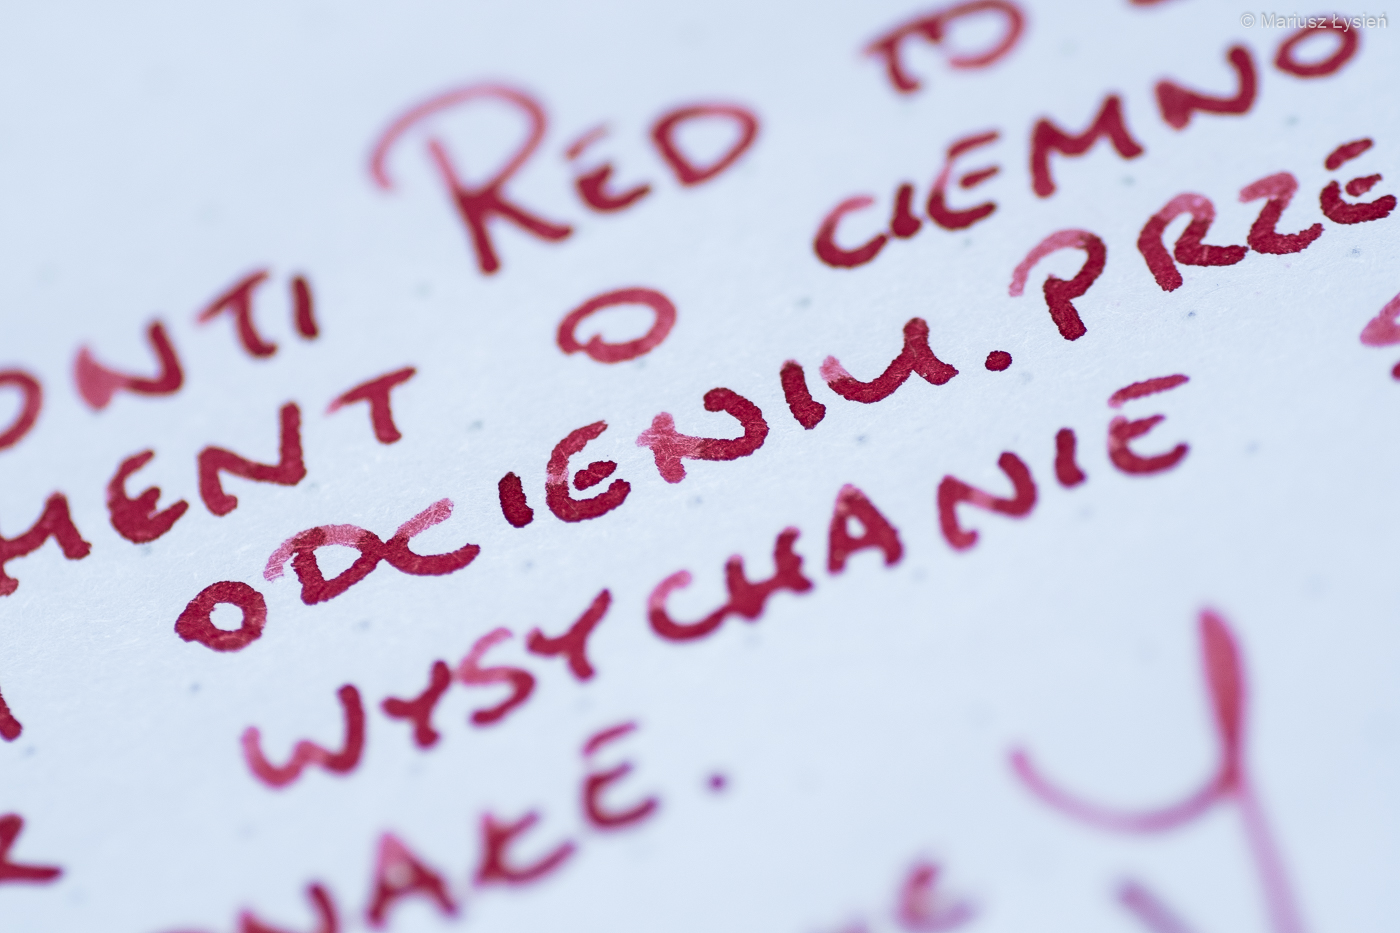 © Mariusz Łysień
ONTI RED TO
MENT O CIEMNO
ODCIENIU. PRZE
WYSYCHANIE
NAKE.